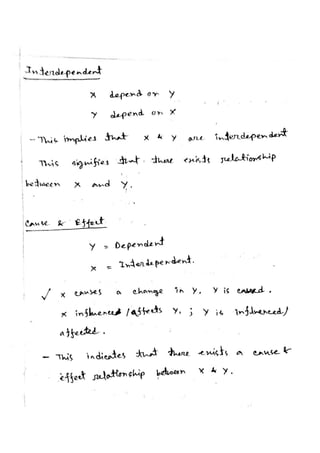 Interdependent
X depend on Y
Y depend on X
- This implies that X & Y are interdependent
This signifies that there exists relationship
between X and Y.
Cause & Effect
Y = Dependent
X = Interdependent.
✓ X causes a change in Y, Y is caused.
X influences / affects Y, ; Y is influenced/
affected.
- This indicates that there exists a cause &
effect relationship between X & Y.